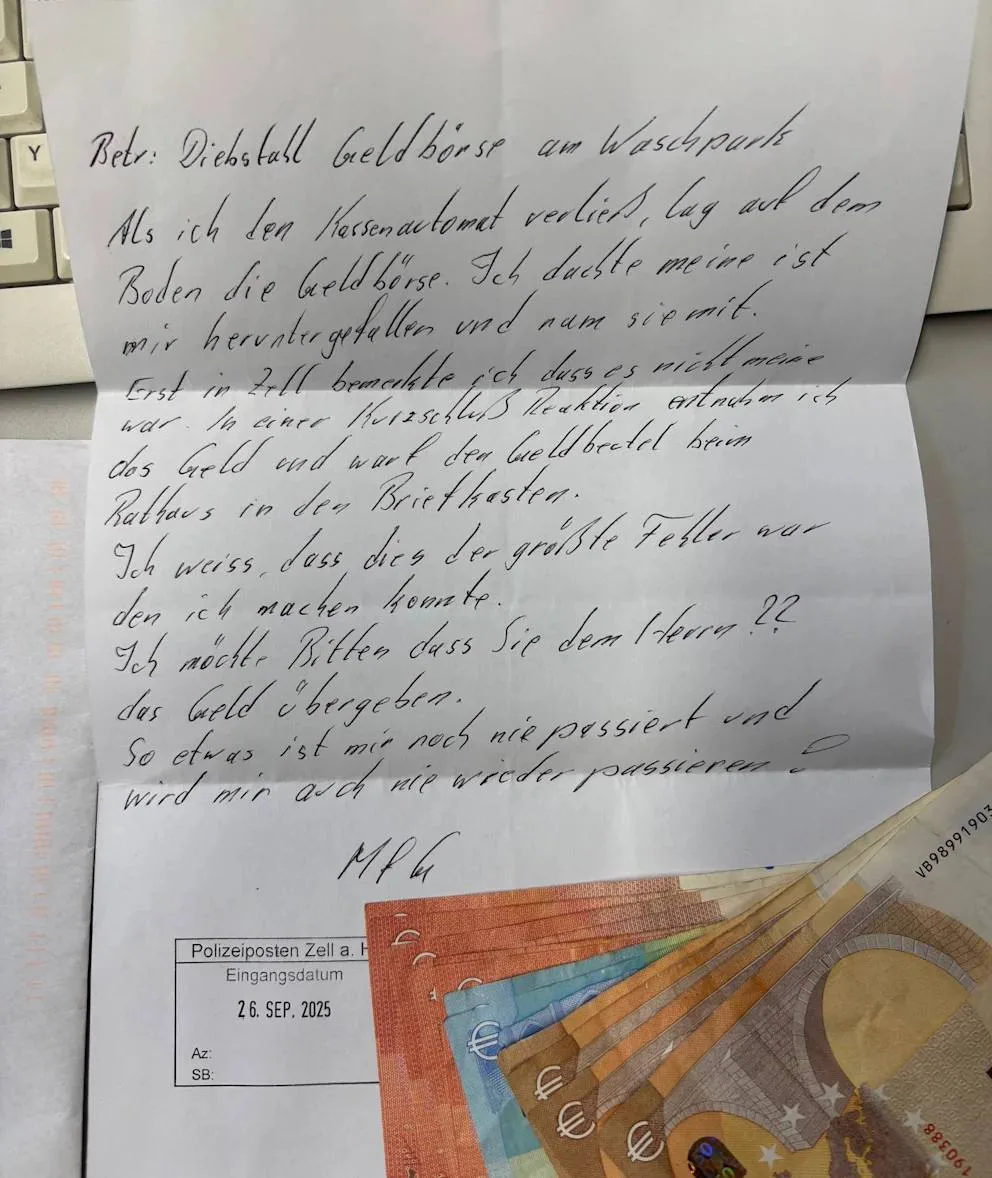 Betr: Diebstahl Geldbörse am Waschpark
Als ich den Kassenautomat verließ, lag auf dem
Boden die Geldbörse. Ich dachte meine ist
mir heruntergefallen und nam sie mit.
Erst in Zell bemerkte ich dass es nicht meine
war. In einer Kurzschluß Reaktion entnahm ich
das Geld und warf den Geldbeutel beim
Rathaus in den Briefkasten.
Ich weiss, dass dies der größte Fehler war
den ich machen konnte.
Ich möchte Bitten dass Sie dem Herrn ??
das Geld übergeben.
So etwas ist mir noch nie passiert und
wird mir auch nie wieder passieren!
MfG
Polizeiposten Zell a. H
Eingangsdatum
26. SEP. 2025
Az:
SB:
VB98991903
190388
Y